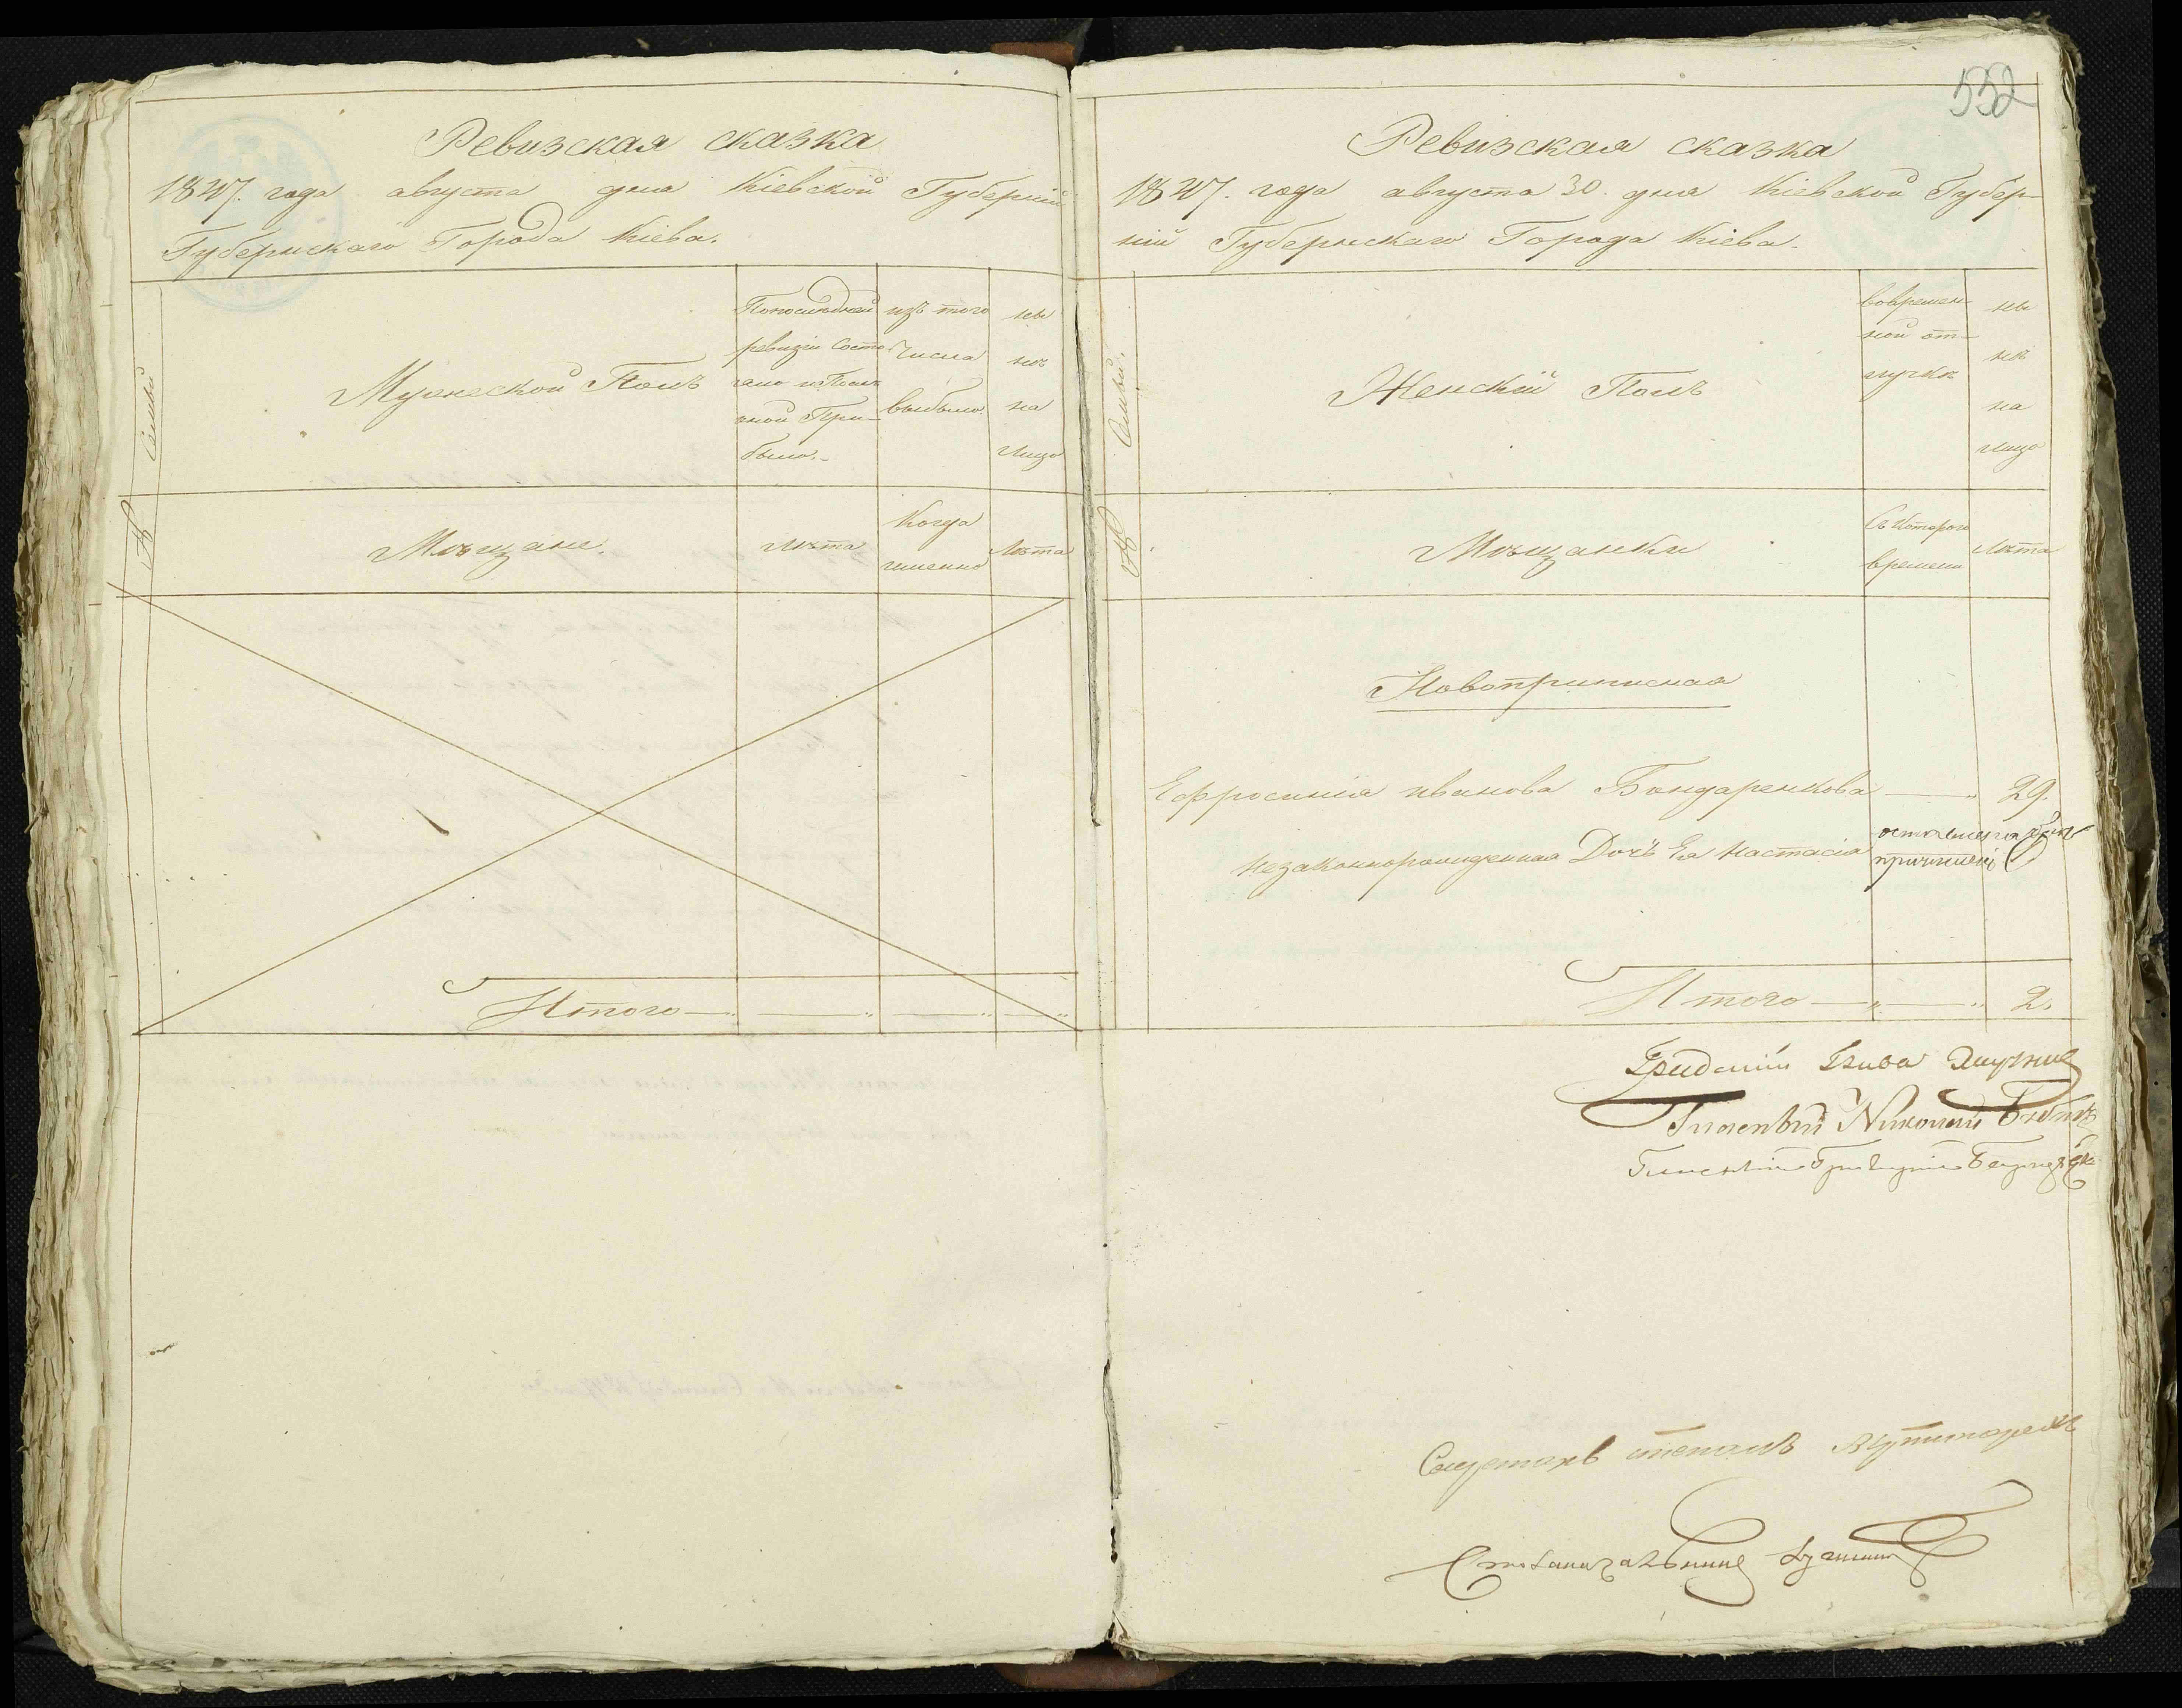 Ревизская сказка
1847. года августа дня Кіевской Губерніи
Губернскаго Города Кіева.
Семьи
Мужеской Полъ
По последней
ревизіи состо-
яло и После
оной При-
было.
изъ того
числа
выбыло
ны
не
на
лицо
№
Мѣщане.
Лѣта
Когда
именно
Лѣта
Итого
552
Ревизская сказка
1847. года августа 30. дня Кіевской Губер-
ніи Губернскаго Города Кіева.
Семьи.
Женскій Полъ
вовремен-
ной от-
лучкѣ
ны
нѣ
на
лицо
№
Мѣщанки
Съ Котораго
времени
Лѣта
Новоприписная
Ефросинія иванова Бондаренкова 29.
незаконнорожденная Дочь Ея Настасія
Итого 2.
Глава
Гласный Николай
Гласный Григорій
степанъ